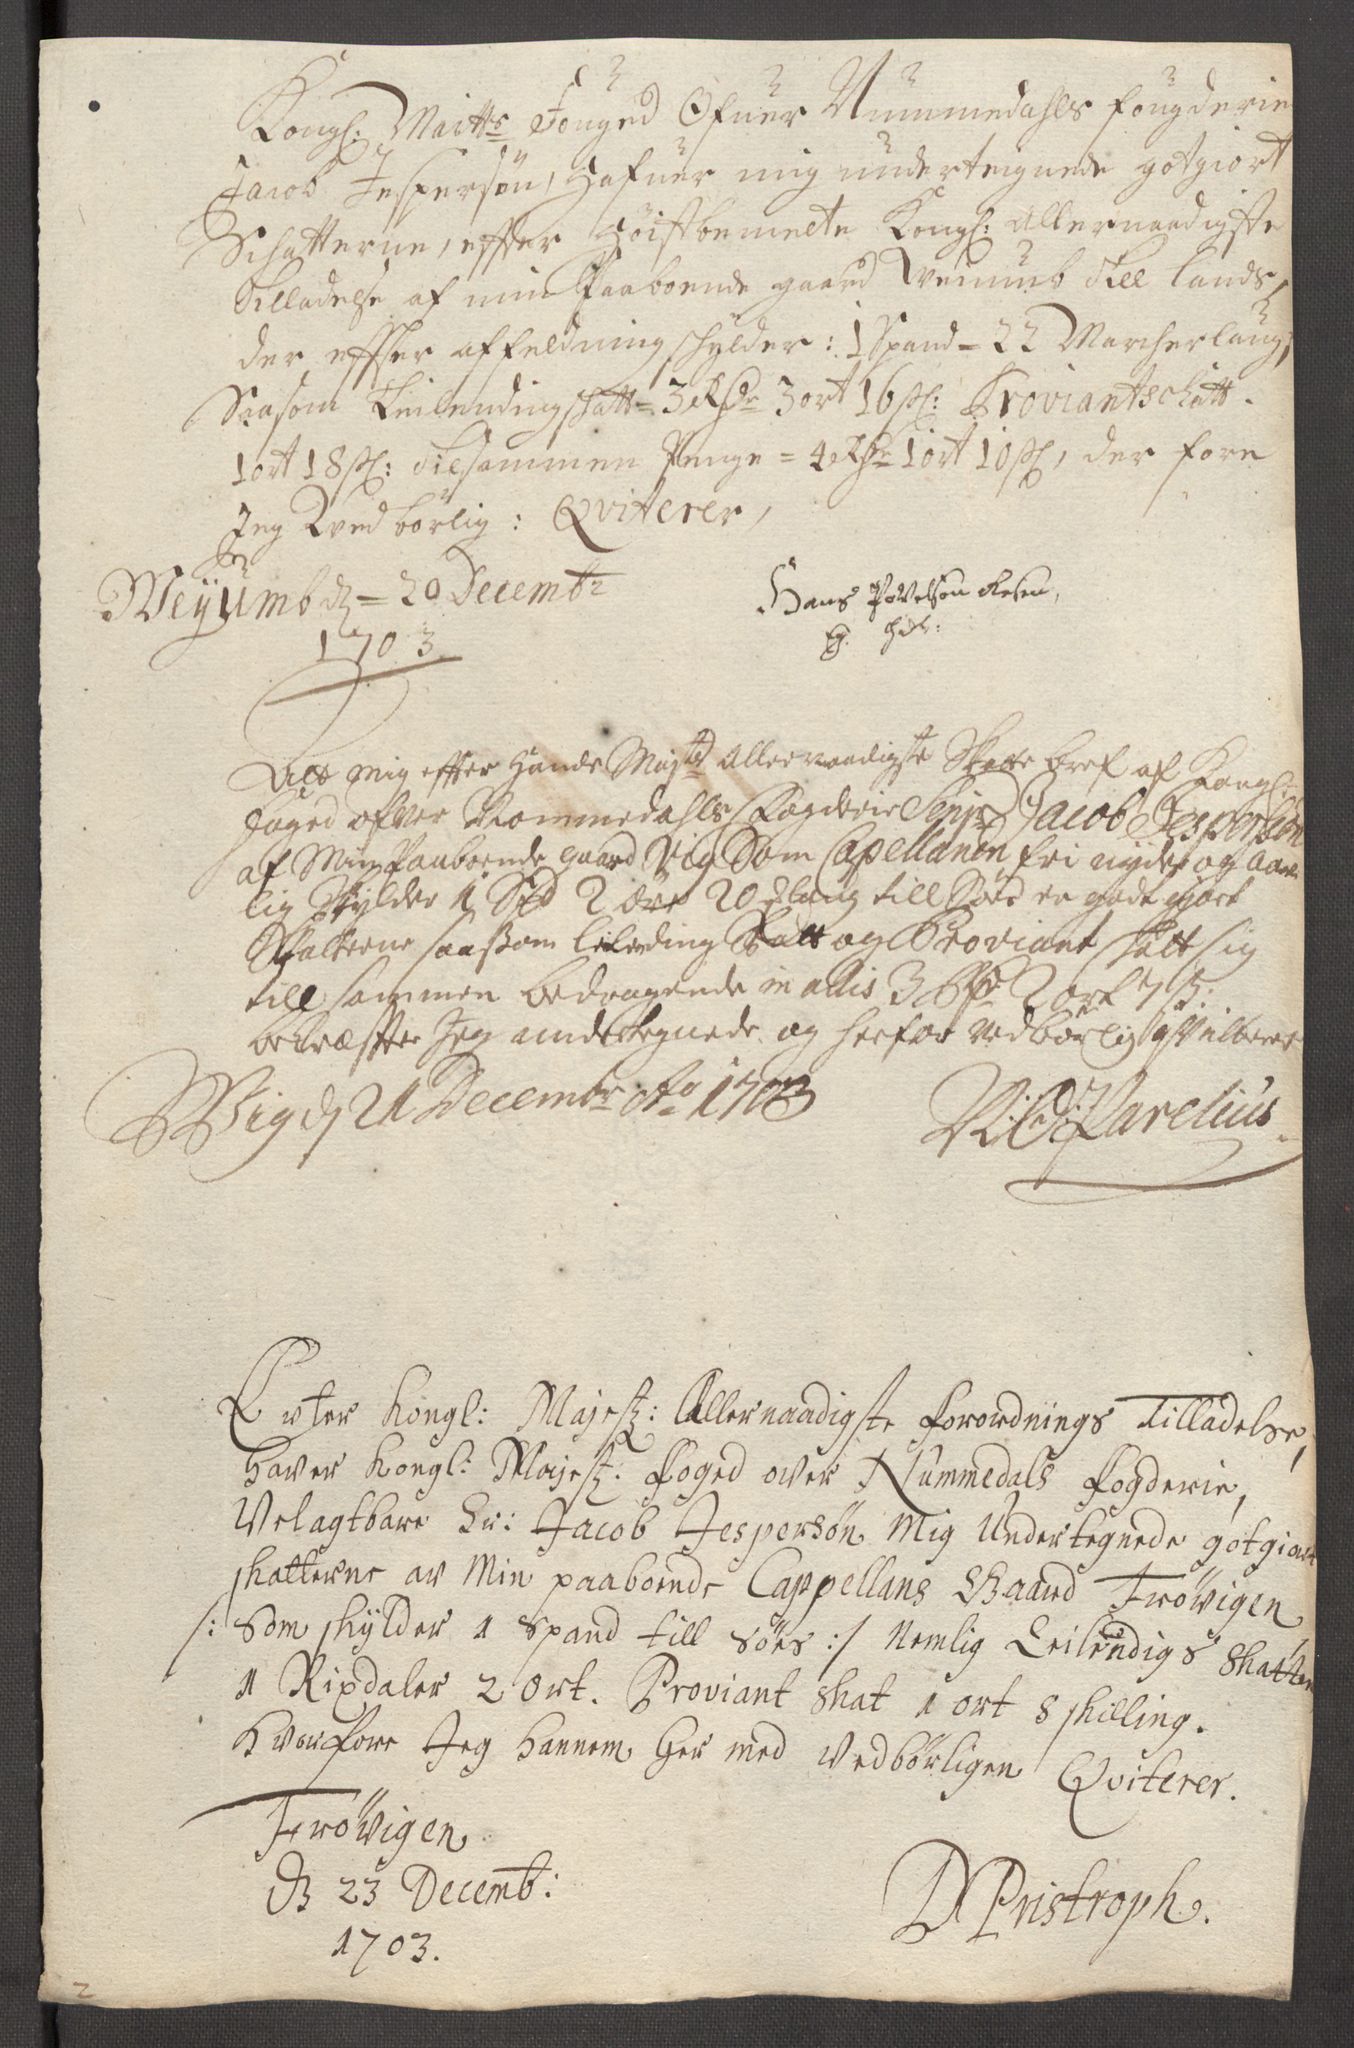 Kongl: Maitts Fouged Ofuer Nummedahls fougderie
Jacob Jespersøn, Hafuer mig underteignede gotgiort
Schatterne, effter Høistbemelte Kongl: Allernaadigste
Tilladelse af min Paaboende gaard Weiumb Till lands,
der effter affeldning schylder: 1 Spand = 22 Marcherlaug,
Saasom Leilending schatt = 3 Rdr 3 ort 16 sl: Proviantschatt.
1 ort 18 sl: Tilsammen Penge = 4 Rdr 1 ort 10 sl, der fore
Jeg Vedbørlig: Qviterer,
Weyumb d = 20 Decembr
1703
Hans Povelsøn Resen,
Eg. hdh:
At mig effter Hands Majtz Allernaadigste Skatte bref af Kongl:
Foged ofver Nommedahls Fogderie Senjr Jacob Jespersøn
af Min Paaboende gaard Vig Som Capellanen fri nyder og aar
lig skylder 1 Spd 2 øre 20 laug till Søes er godt giort
Skatterne saasom leilending Skatt og Proviant skatt sig
till sammen bedragende in alis 3 Rdr 2 ort 7 s:
bekræffter Jeg undertegnede og herfor vedbørlig qvitterer
Wig d 21 Decembr Ao 1703
N: C: Parelius
Evter Kongl: Majestz: Allernaadigste forordnings Tilladelse,
haver Kongl: Majestz: Foged over Nummedals Fogderie,
Velagtbare Sr: Jacob Jespersøn Mig Undertegnede gotgiort
skatterne av Min paaboende Cappellans Gaard Frøvigen
/: Som skylder 1 Spand till søes :/ Nemlig Leilendigs Skatten
1 Rixdaler 2 Ort. Proviant skat 1 ort 8 skilling.
Hvorfore Jeg hannem her med Vedbørligen Qviterer.
Frøvigen
d 23 Decemb:
1703.
D Pristroph.
2